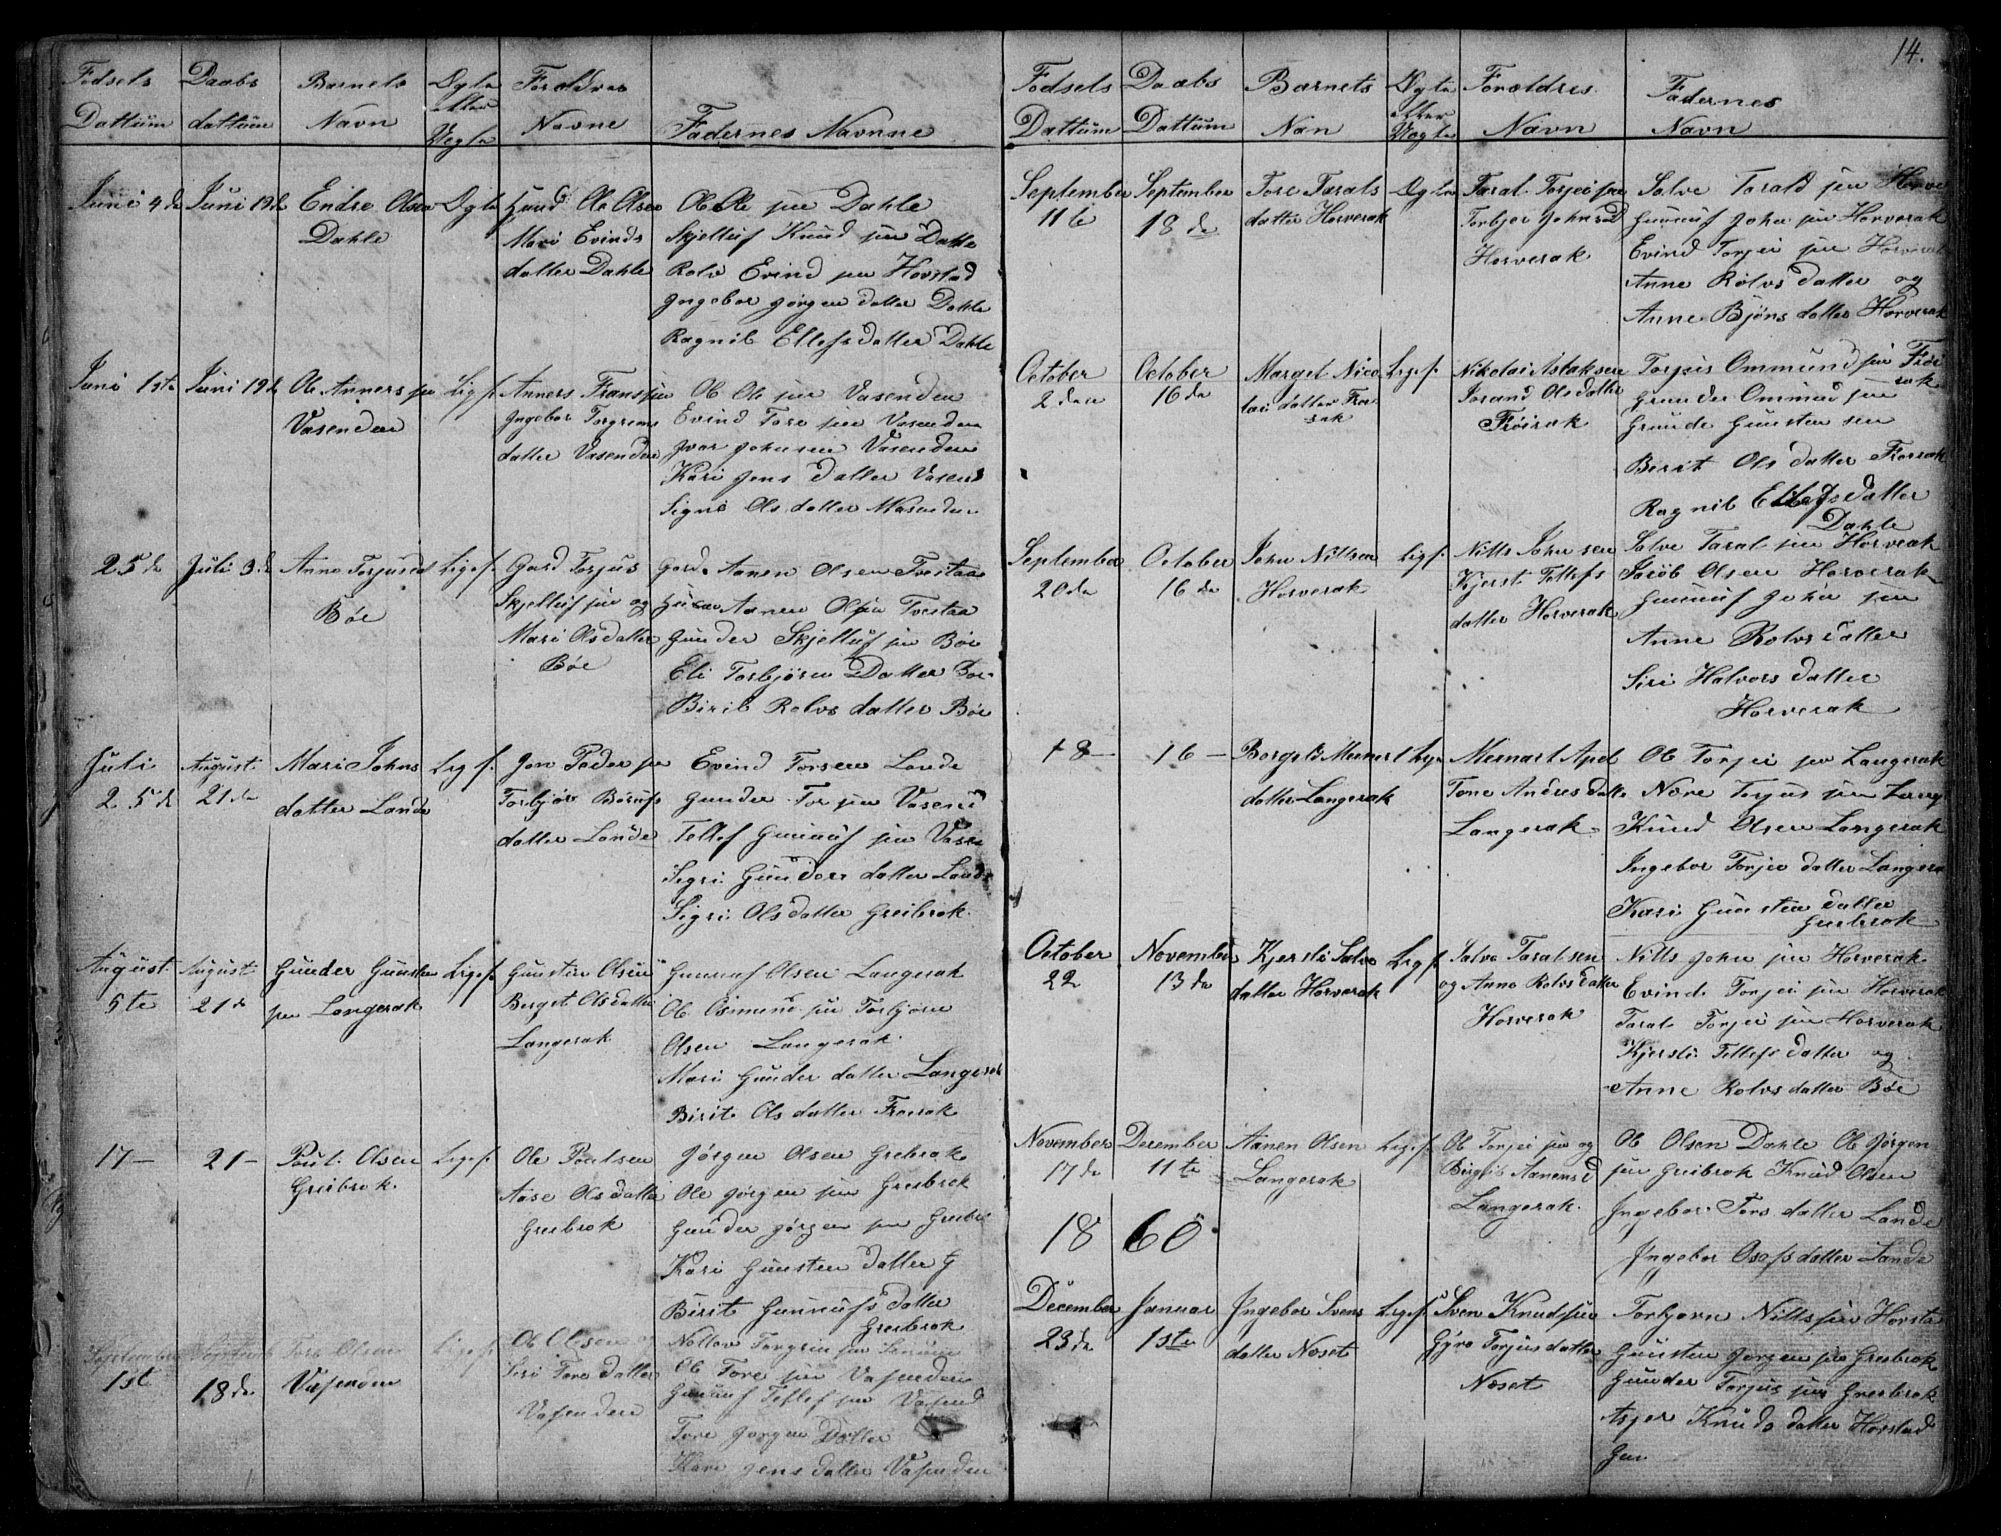 14.
Fodsels Dattum
Daabs dattum
Barnets Navn
Ægte etter Uegte
Foraldres Navne
Fadernes Navnne
Juni 4de
Juni 19de
Endre Olsen
Dahle
Ægte
Knud Ole Olsen
Mari Evinds
datter Dahle
Ole Ole sen Dahle
Skjelluf Knud sen Dahle
Rolv Evind sen Horstad
Jngebor Jørgen datter Dahle
Ragnil Ellefsdatter Dahle
Juni 1ste
Juni 19de
Ole Anners sen
Vasenden
Ligs.
Anners Frans sen
Jngebor Torgrems
datter Vasenden
Ole Ole sen Vasenden
Evind Tore sen Vasenden
Jvar Johnsen Vasenden
Kari Jens datter Vasend
Signe Ols datter Vasenden
25de
Juli 3de
Anne Torjusdat
Bøe
Ligs.
Gard Torjus
Skjelluf sen og
Mari Olsdatter
Bøe
Gard Aanen Olsen Tvetaa
Aanen Olsen Tvetaa
Gunder Skjelluf sen Bøe
Eli Torbjören Datter Bøe
Birit Rolvs datter Bøe
Juli
25de
August
21de
Mari Johns
datter Lande
Ligs.
Jon Peder sen
Torbjør
datter Lande
Evind Torsen Lande
Gunder Tor sen Vasend
Tellef Gunnuf sen Vasen
Sigri Gunders datter Lande
Sigri Olsdatter Greibrok.
August
5te
August
21de
Gunder Gunsten
sen Langerak
Ligs.
Gunsten Olsen
Berget Olsdatter
Langerak
Gunnuf Olsen Langerak
Ole Osmund sen Torbjörn
Olsen Langerak.
Mari Gunder datter Langerak
Birit Ols datter Frøirak
17—
21—
Poul Olsen
Greibrok.
Ligs.
Ole Poulsen
Aase Olsdatter
Greibrok
Jörgen Olsen Greibrok
Ole Jörgen sen Greibrok
Gunder Jörgen sen Greibr
Kari Gunsten datter G
Birit Gunnufs datter
Greibrok
September
1st
18de
Tore Olsen
Vasenden
Ligs.
Ole Olsen og
Siri Tore datter
Vasenden
Ole Tore sen Vasenden
Gunnuf Tellef sen Vasend
Tore Jorgen Datter
Kari Jens datter Vasenden
Fodsels Dattum
Daabs Dattum
Barnets Nan
Ægte etter Uegte
Forældres Navn
Fadernes Navn
September
11te
September
18de
Tore Tarals
datter Horverak
Ægte
Taral Torjei sen
Torbjor Johnsd
Horverak
Salve Tarald sen Horve
Gunnuf John sen Horverak
Evind Torjei sen Horverak
Anne Rolvs datter og
Anne Bjöns datter Horverak
October
2den
October
16de
Marget Nico
lai datter Frø
rak
Ligs.
Nikolai Aslaksen
Jorand Olsdatter
Frøirak
Torjus Ommund sen Frøi
rak
Gunder Ommund sen
Gunde Gunsten sen
Berit Ols datter Frøirak
Ragnil Ellefsdatter
Dahle
September
20de
October
16de
John Nillsen
Horverak
Ligs.
Nills Johnsen
Kjerst Tellefs
datter Horverak
Salve Taral sen Horverak
Jacob Olsen Horverak
Gunnuf John sen
Anne Rolvs datter
Siri Halvors datter
Horverak
18—
16—
Borgild Meinart
datter Langerak
Meinart Apel
Tone Andres datte
Langerak.
Ole Torjei sen Langerak
Torjus sen Lang
Knud Olsen Langerak
Ingebor Torjei datter Langera
Kari Gunsten datter
Greibrok
October
22
November
13de
Kjersti Salve
datter Horverak
Ligs.
Salve Taralsen
og Anne Rolvsdatter
Horverak
Nills John sen Horverak
Evind Torjei sen Horverak
Taral Torjei sen Horverak
Kjersti Tellefs datter og
Anne Rolvs datter Bøe
November
17de
December
11te
Aanen Olsen
Langerak
Ligs.
Ole Torjei sen og
Birgit Aanensd
Langerak.
Ole Olsen Dahle Ole Jørgen
sen Greibrok Knud Olsen
Ingebor Tors datter Lande
Jngebor Osefs datter Lande
1860
December
23de
Januar
1ste
Jngebor Svens
datter Næset
Ligs.
Sven Knudsen
Gyro Torjusdatter
Næset
Torbjorn Nills sen Horsta
Gunsten Jorgen sen Greibrok
Gunder Torjus sen Greibrok
Asjer Knuds datter Horstad
Gun